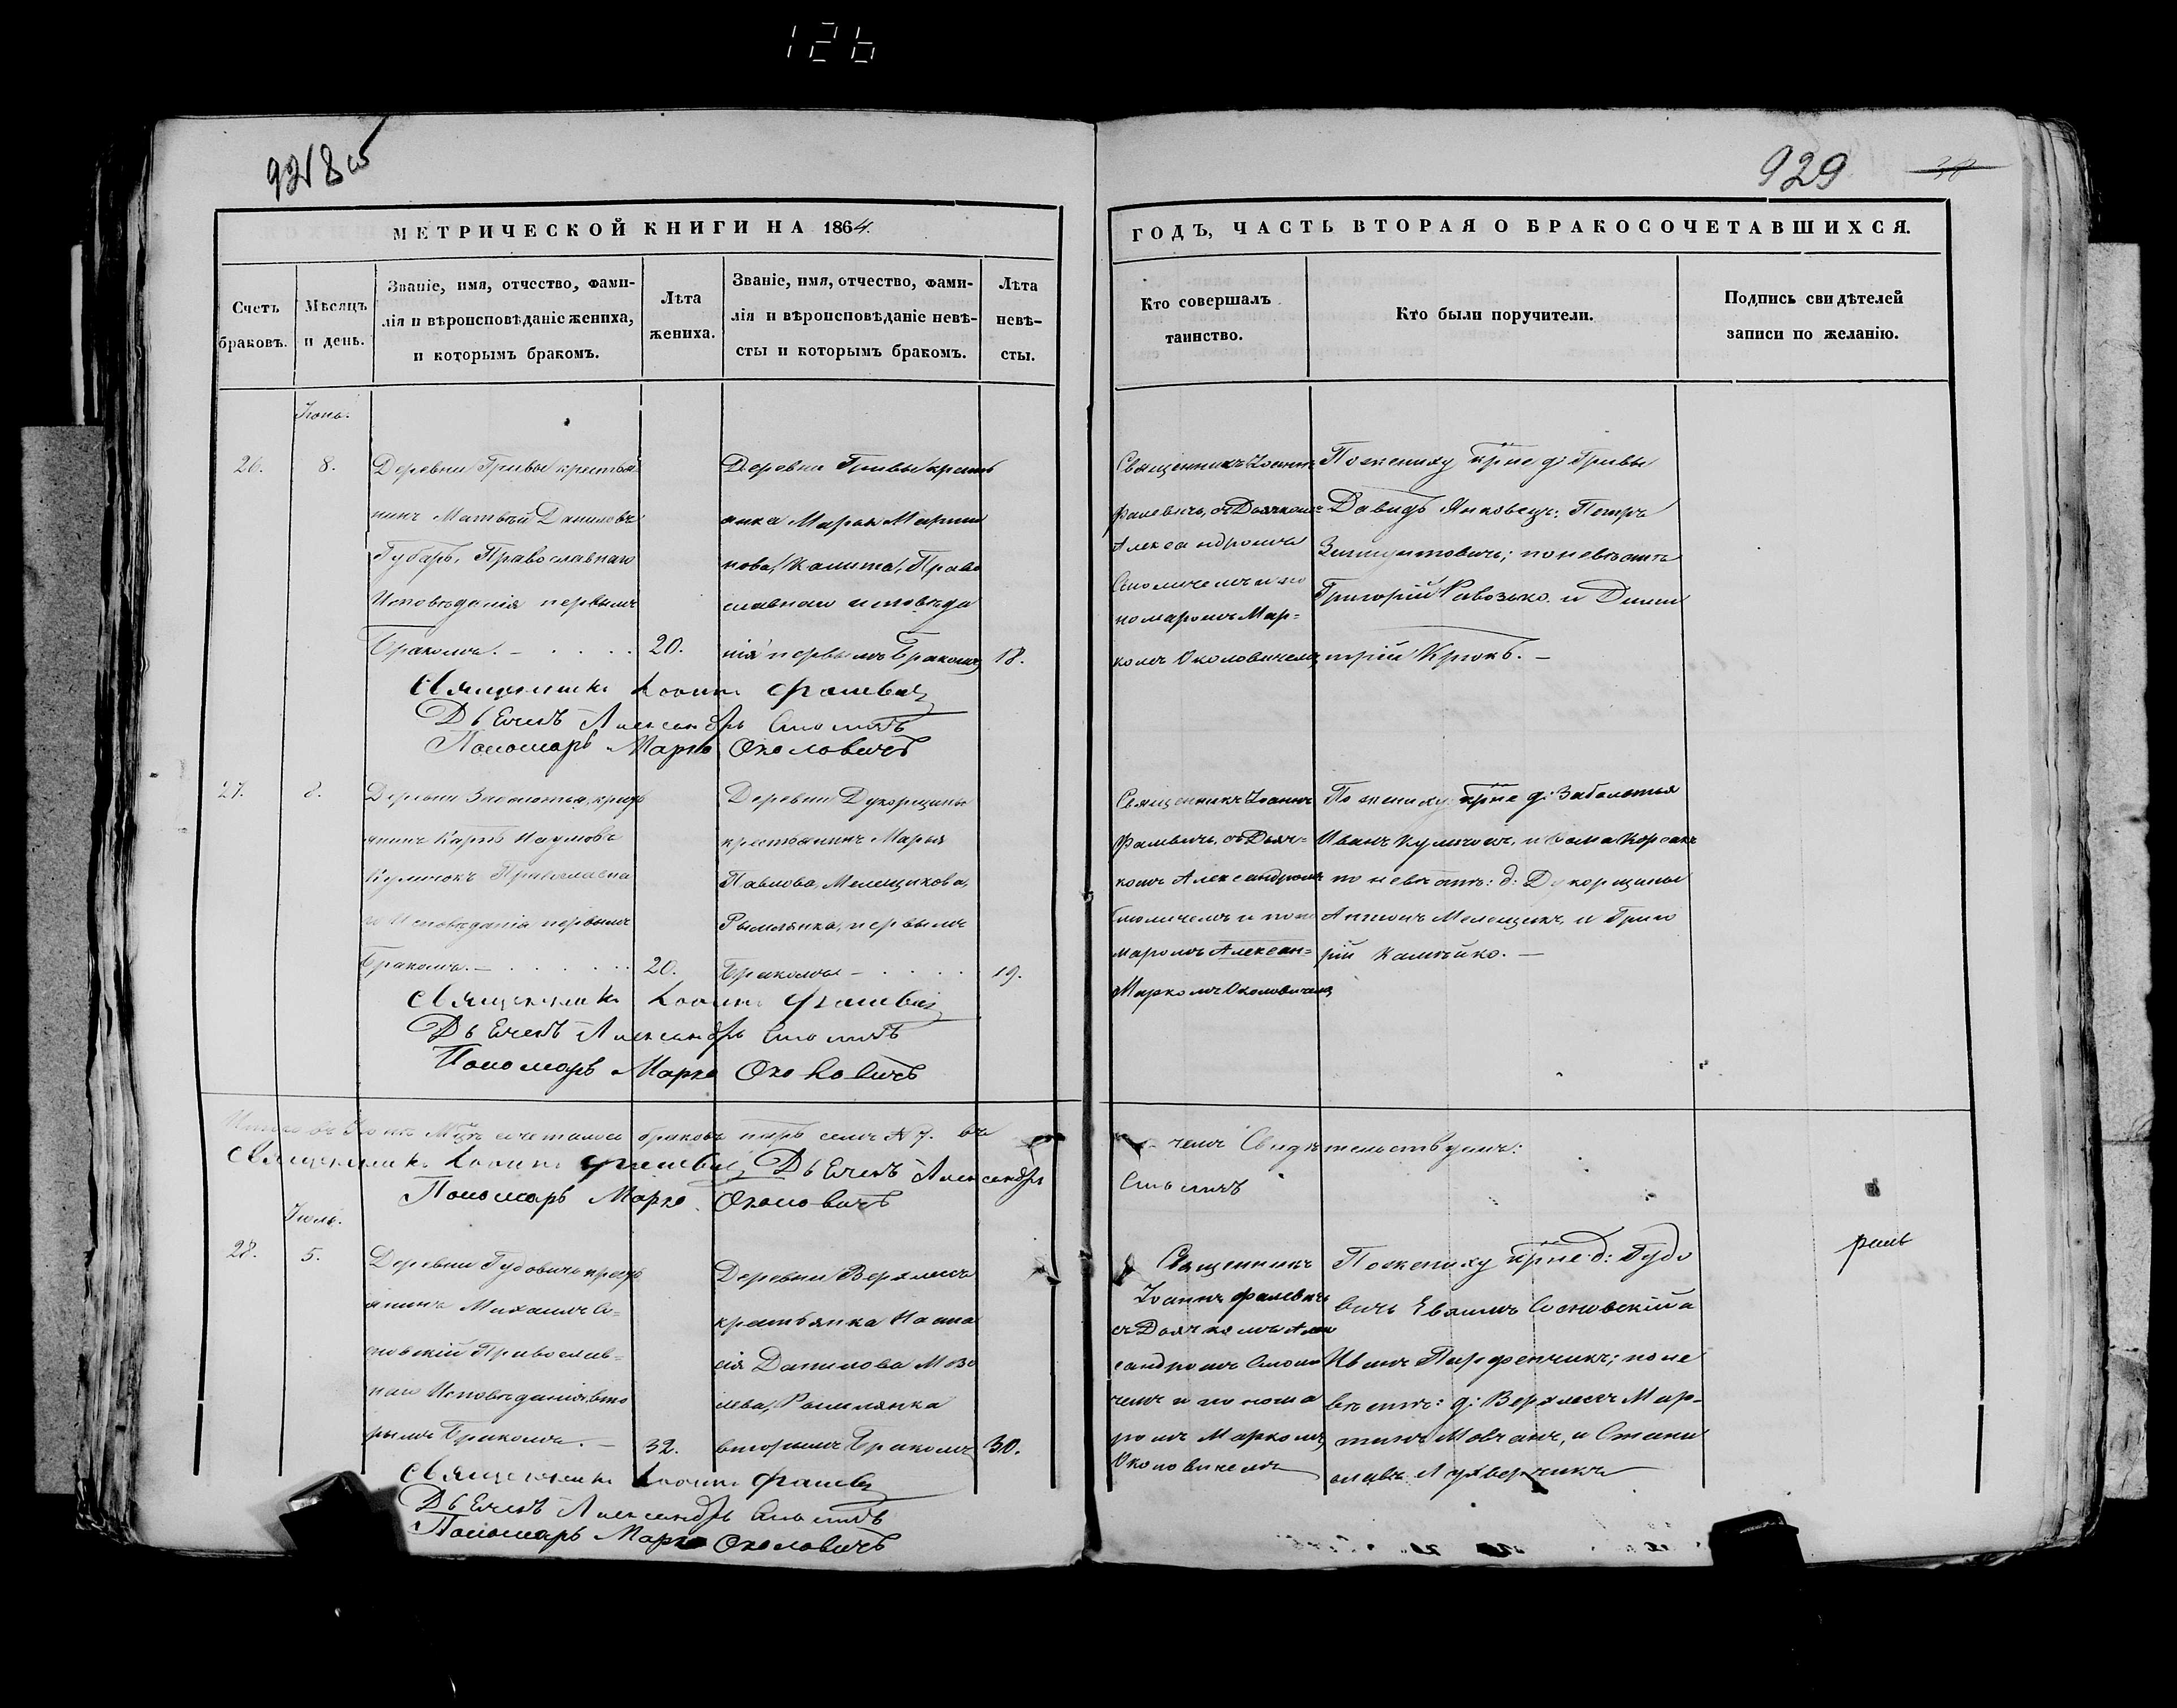 126
928 об
929
МЕТРИЧЕСКОЙ КНИГИ НА 1864.
ГОДЪ, ЧАСТЬ ВТОРАЯ О БРАКОСОЧЕТАВШИХСЯ.
Счетъ
браковъ.
Мѣсяцъ
и день.
Званіе, имя, отчество, фами-
лія и вѣроисповѣданіе жениха,
и которымъ бракомъ.
Лѣта
жениха.
Званіе, имя, отчество, фами-
лія и вѣроисповѣданіе невѣ-
сты и которымъ бракомъ.
Лѣта
невѣ-
сты.
Кто совершалъ
таинство.
Кто были поручители.
Подпись свидѣтелей
записи по желанію.
Іюнь.
26.
8.
Деревни Гривы крестья
нинъ Матвѣй Даниловъ
Губарь, Православнаго
Исповѣданія первымъ
бракомъ. —
20.
Деревни Гривы крестъ
янка Марья Марти
нова, Калита, Право
славнаго исповѣда
нія первымъ бракомъ
18.
Священникъ Іоаннъ
Фалевичъ, съ Дьячкомъ
Александромъ
Смоличемъ и по
номаромъ Мар-
комъ Околовичемъ
По жениху кр͠не д: Гривы
Давидъ Янковецъ. Петръ
по невѣстѣ
Григорій и Дими
трій Крюкъ. —
Священникъ Іоаннъ Фалевичъ
Дьячекъ Александръ Смоличъ
Пономарь Марко Околовичъ
27.
8.
Деревни Заболотья, крест
янинъ Карпъ Наумовъ
Куличокъ Православна
го Исповѣданія первымъ
бракомъ. —
20.
Деревни Дукорщины
крестьянинъ Марья
Павлова, Мелещикова,
Римлянка, первымъ
бракомъ —
19.
Священникъ Іоаннъ
Фалевичъ, съ Дьяч-
комъ Александромъ
Смоличемъ и поно
маромъ Алексан-
Маркомъ Околовичемъ
По жениху кр͠не д: Заболотья
Иванъ Куличокъ, и Фома Корсакъ
по невѣстѣ: д: Дукорщины
Антонъ Мелещикъ, и Григо
рій —
Священникъ Іоаннъ Фалевичъ
Дьячекъ Александръ Смоличъ
Пономарь Марко Околовичъ
Итого въ Іюнѣ Мц͠ѣ сочеталось браковъ паръ семь № 7. въ
чемъ Свидѣтельствуемъ:
Священникъ Іоаннъ Фалевичъ Дьячекъ Александръ
Смоличъ
Пономарь Марко Околовичъ
Іюль.
28.
5.
Деревни Гудовичь крест
янинъ Михаилъ Со-
сновскій Православ-
наго Исповѣданія вто
рымъ бракомъ. —
32.
Деревни Верхлесъ
крестьянка Наста
сія Данилова
Римлянка
вторымъ бракомъ
30.
Священникъ
Іоаннъ Фалевичъ
съ Дьячкомъ Алек
сандромъ Смоли
чемъ и понома
ромъ Маркомъ
Околовичемъ
По жениху кр͠не д: Гудо
вичь Сосновскій и
Иванъ Парфенчикъ; по не
вѣстѣ: д: Верхлесъ Мар-
тинъ Мовчанъ, и Стани
славъ
Священникъ Іоаннъ Фалевичъ
Дьячекъ Александръ Смоличъ
Пономарь Марко Околовичъ